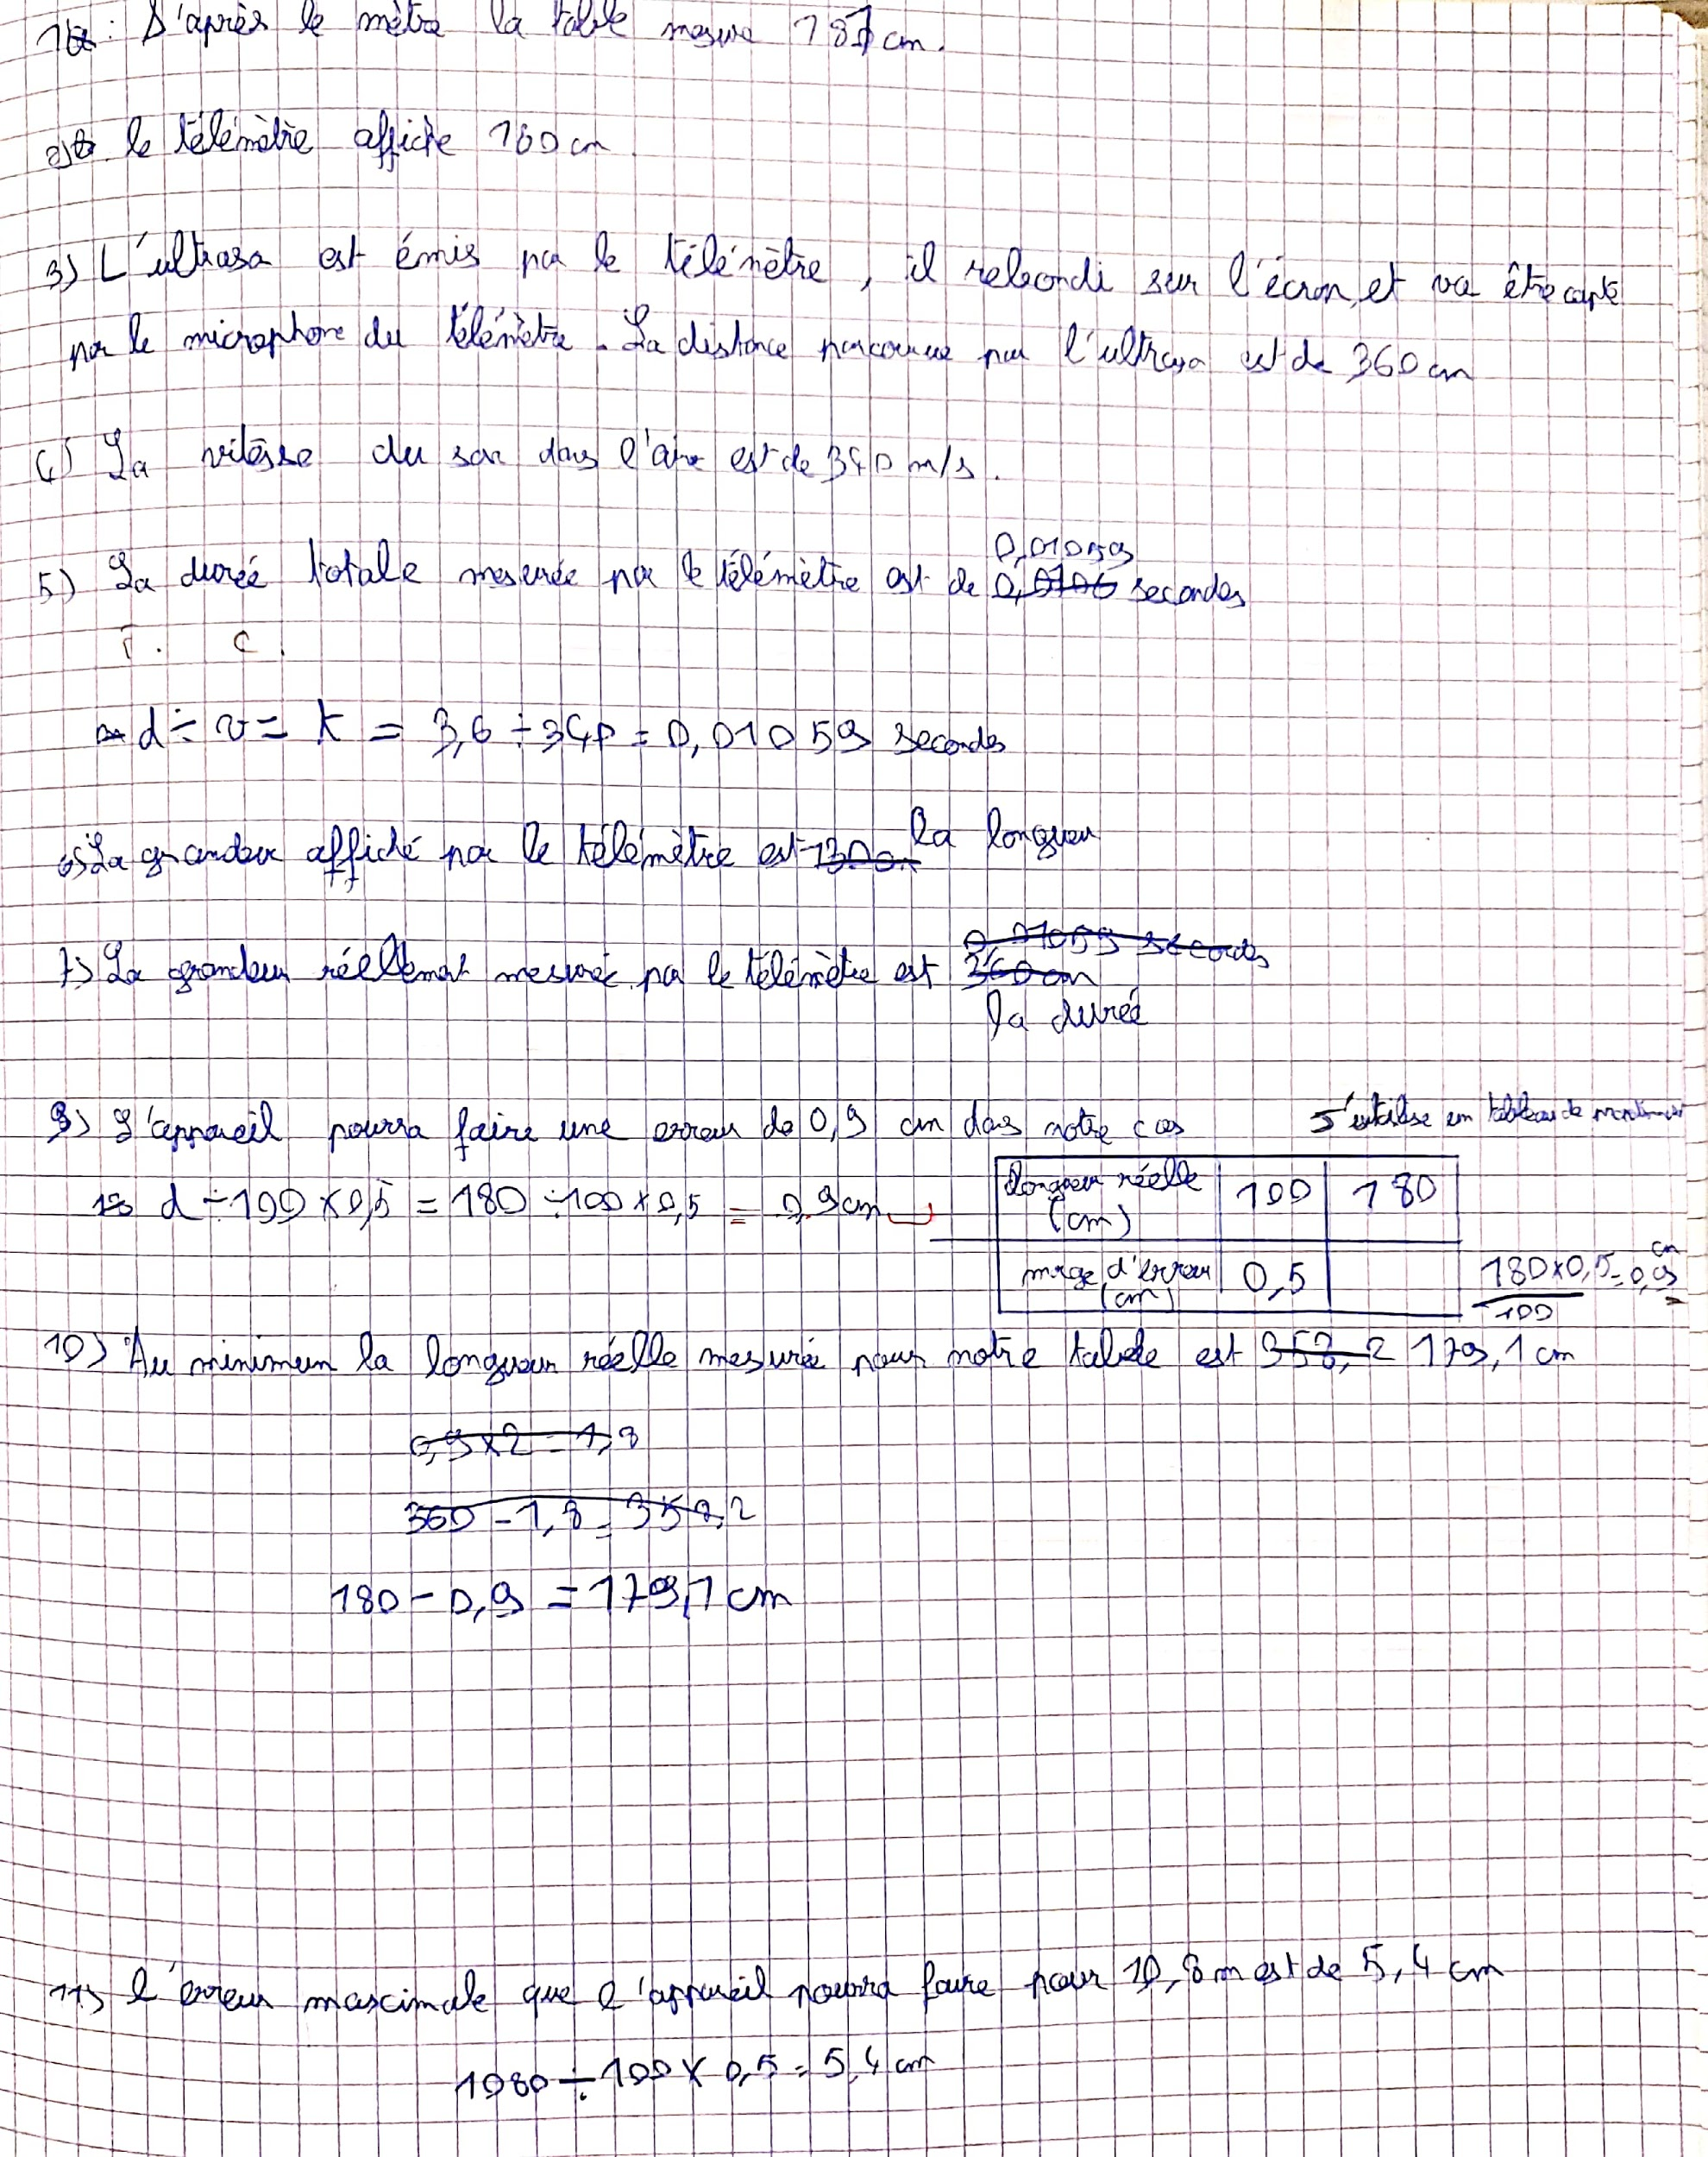 1) : D'après le mètre la table mesure 181 cm.
2) le télémètre affiche 180 cm
3) L'ultrason est émis par le télémètre, il rebondi sur l'écran, et va être capté
par le microphone du télémètre. La distance parcourue par l'ultrason est de 360 cm
4) La vitesse du son dans l'air est de 340 m/s.
0,01059
5) La durée totale mesurée par le télémètre est de 0,0106 secondes
T. C.
d ÷ v = t = 3,6 ÷ 340 = 0,01059 secondes
6) La grandeur affiché par le télémètre est la longueur
0,01059 secondes
7) La grandeur réellement mesurée par le télémètre est 360 cm
la durée
9) L'appareil pourra faire une erreur de 0,9 cm dans notre cas
J'utilise un tableau de
d ÷ 100 x 0,5 = 180 ÷ 100 x 0,5 = 0,9 cm
longueur réelle (cm) 100 180
marge d'erreur (cm) 0,5
180 x 0,5 / 100 = 0,9 cm
10) Au minimum la longueur réelle mesurée pour notre table est 358,2 179,1 cm
0,9 x 2 = 1,8
360 - 1,8 = 358,2
180 - 0,9 = 179,1 cm
11) l'erreur maximale que l'appareil pourra faire pour 10,8 m est de 5,4 cm
1080 ÷ 100 x 0,5 = 5,4 cm